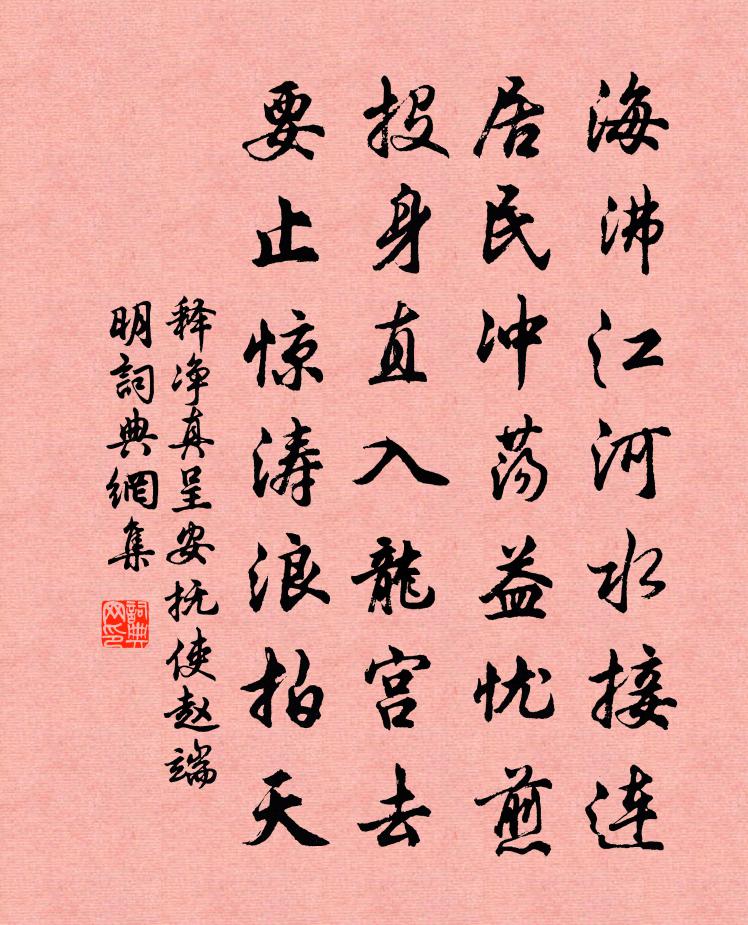 海沸江河水接连
居民冲荡益忧煎
投身直入龙宫去
要止惊涛浪拍天
释净真呈安抚使赵端
明詞典網集
詞典网印